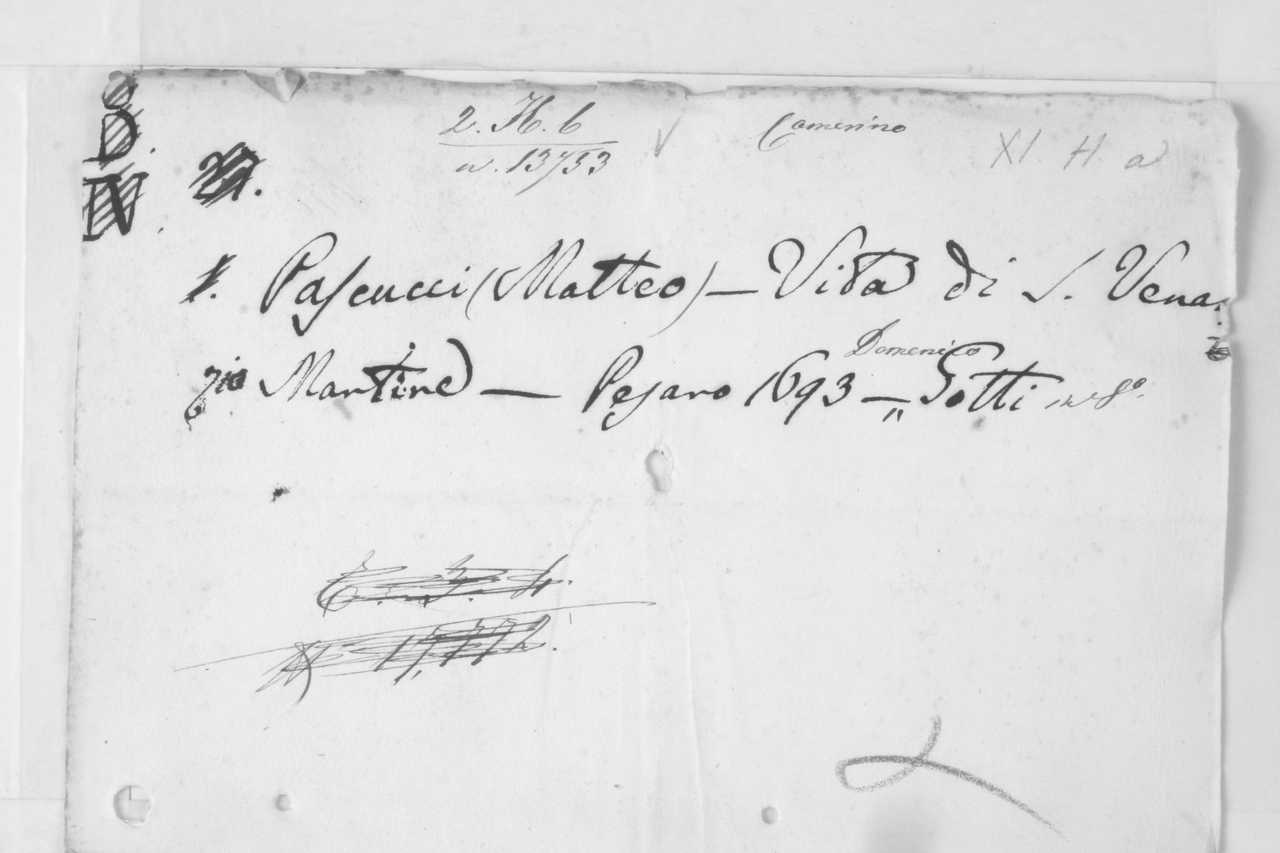 2. H. 6
n. 13753
Camerino
XI H a
Pascucci (Matteo) — Vita di S. Vena:
zio Martire — Pesaro 1693 — Domenico Gotti in 8º.